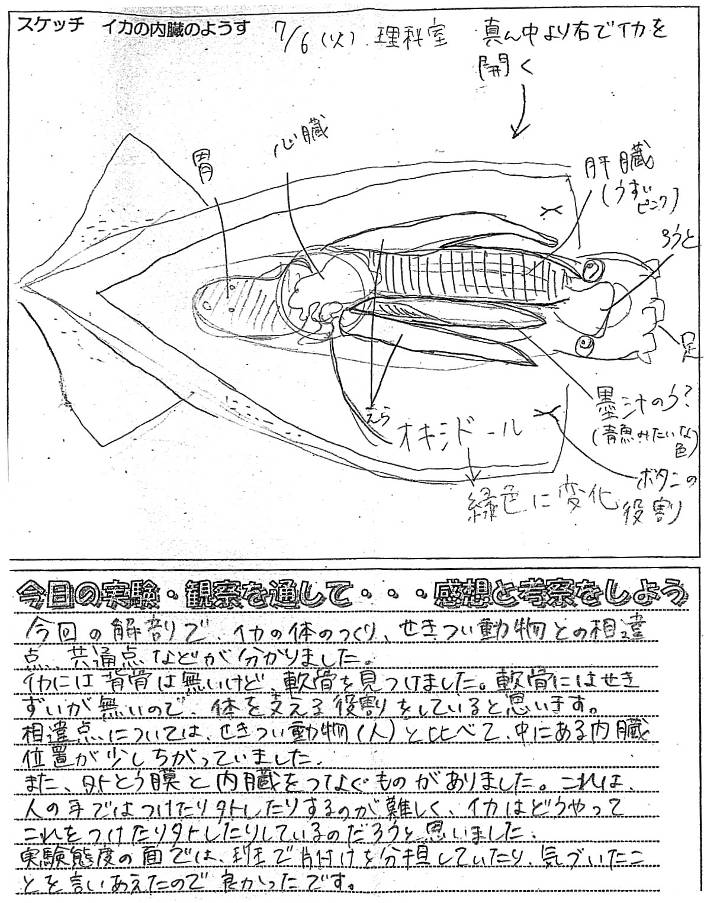 スケッチ イカの内臓のようす
7/6(火) 理科室
真ん中より右でイカを
開く
胃
心臓
肝臓
(うすい
ピンク)
ろうと
足
えら
オキシドール
緑色に変化
墨汁のう?
(青魚みたいな
色)
ボタンの
役割
今日の実験・観察を通して・・・感想と考察をしよう
今回の解剖で、イカの体のつくり、せきつい動物との相違
点、共通点などが分かりました。
イカには背骨は無いけど、軟骨を見つけました。軟骨にはせき
ずいが無いので、体を支える役割をしていると思います。
相違点については、せきつい動物(人)と比べて、中にある内臓
位置が少しちがっていました。
また、外とう膜と内臓をつなぐものがありました。これは、
人の手ではつけたり外したりするのが難しく、イカはどうやって
これをつけたり外したりしているのだろうと思いました。
実験態度の面では、班で片付けを分担していたり、気づいたこ
とを言いあえたので良かったです。